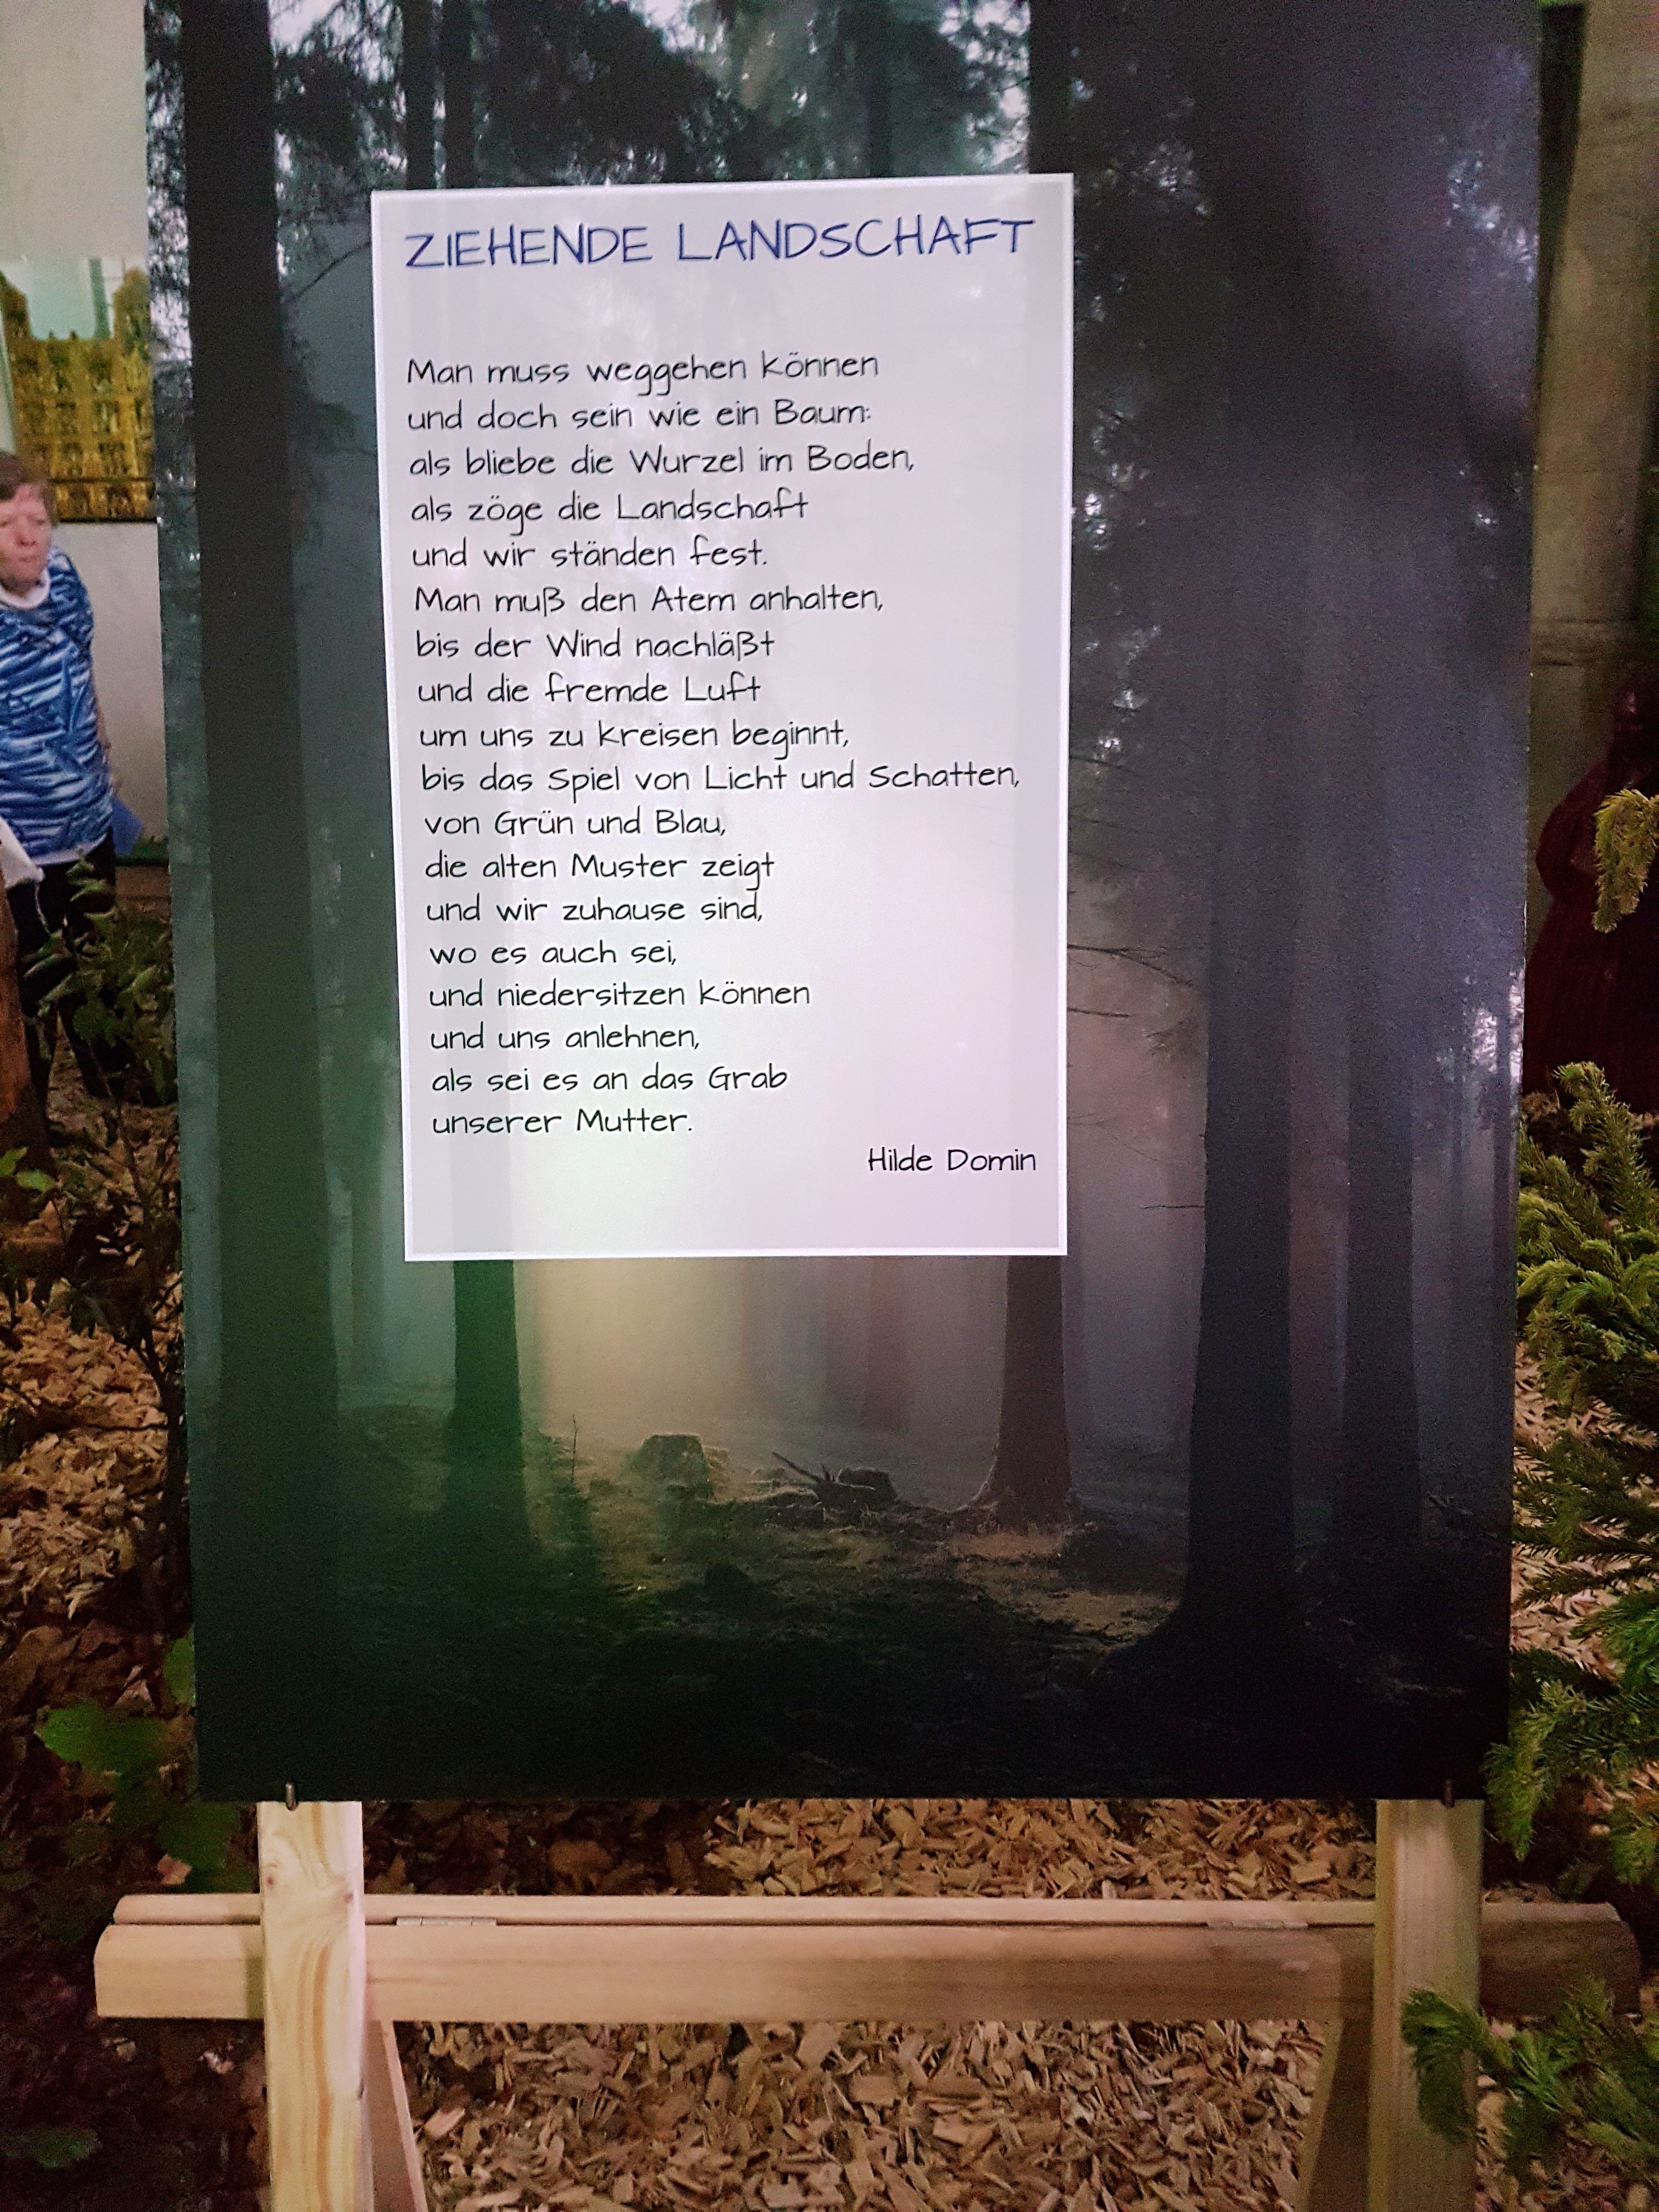 ZIEHENDE LANDSCHAFT
Man muss weggehen können
und doch sein wie ein Baum:
als bliebe die Wurzel im Boden,
als zöge die Landschaft
und wir ständen fest.
Man muß den Atem anhalten,
bis der Wind nachläßt
und die fremde Luft
um uns zu kreisen beginnt,
bis das Spiel von Licht und Schatten,
von Grün und Blau,
die alten Muster zeigt
und wir zuhause sind,
wo es auch sei,
und niedersitzen können
und uns anlehnen,
als sei es an das Grab
unserer Mutter.
Hilde Domin